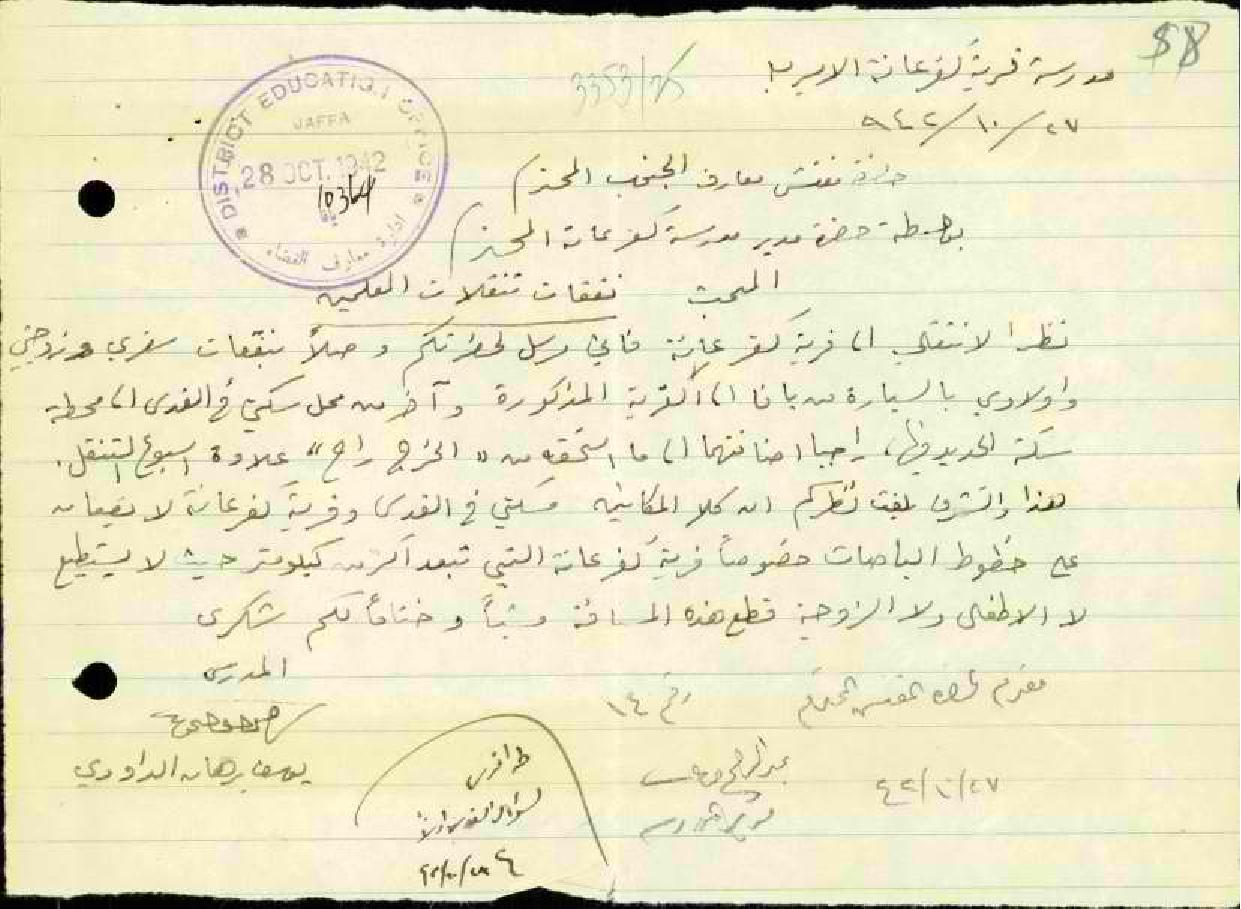 58
مدرسة قرية كفرعانة الاميرية
3353/
٩٤٢/١٠/٢٧
DISTRICT EDUCATION OFFICE
JAFFA
28 OCT. 1942
10364
ادارة معارف القضاء
يافا
حضرة مفتش معارف الجنوب المحترم
بواسطة حضرة مدير مدرسة كفرعانة المحترم
المبحث نفقات تنقلات المعلمين
نظرا لانتقالي الى قرية كفر عانة فاني مرسل لحضرتكم وصلاً بنفقات سفري وزوجتي
واولادي بالسيارة من يافا الى القرية المذكورة وآخر من محل سكني في القدس الى محطة
سكة الحديد فيها، راجيا اضافتهما الى ما استحقه من "الخرج راح" علاوة اسبوع التنقل.
هذا واتشرف بلفت نظركم ان كلا المكانين مسكني في القدس وقرية كفرعانة لا يقعان
على خطوط الباصات خصوصاً قرية كفرعانة التي تبعد اكثر من كيلومتر حيث لا يستطيع
لا الاطفال ولا الزوجة قطع هذه المسافة مشياً وختاماً لكم شكري
المدرس
يوسف برهان الداودي
مقدم لحضرة المفتش المحترم
رقم ١٤
٤٢/١٠/٢٧